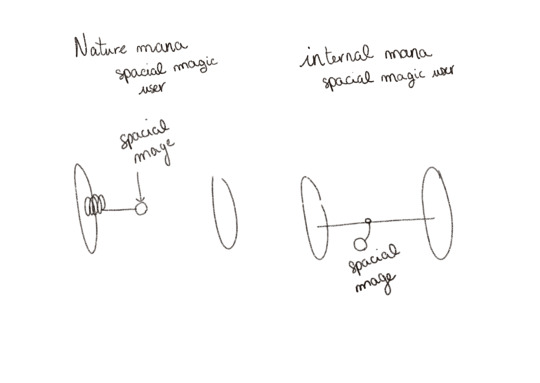 Nature mana
spacial magic
user
spacial
mage
internal mana
spacial magic user
spacial
mage